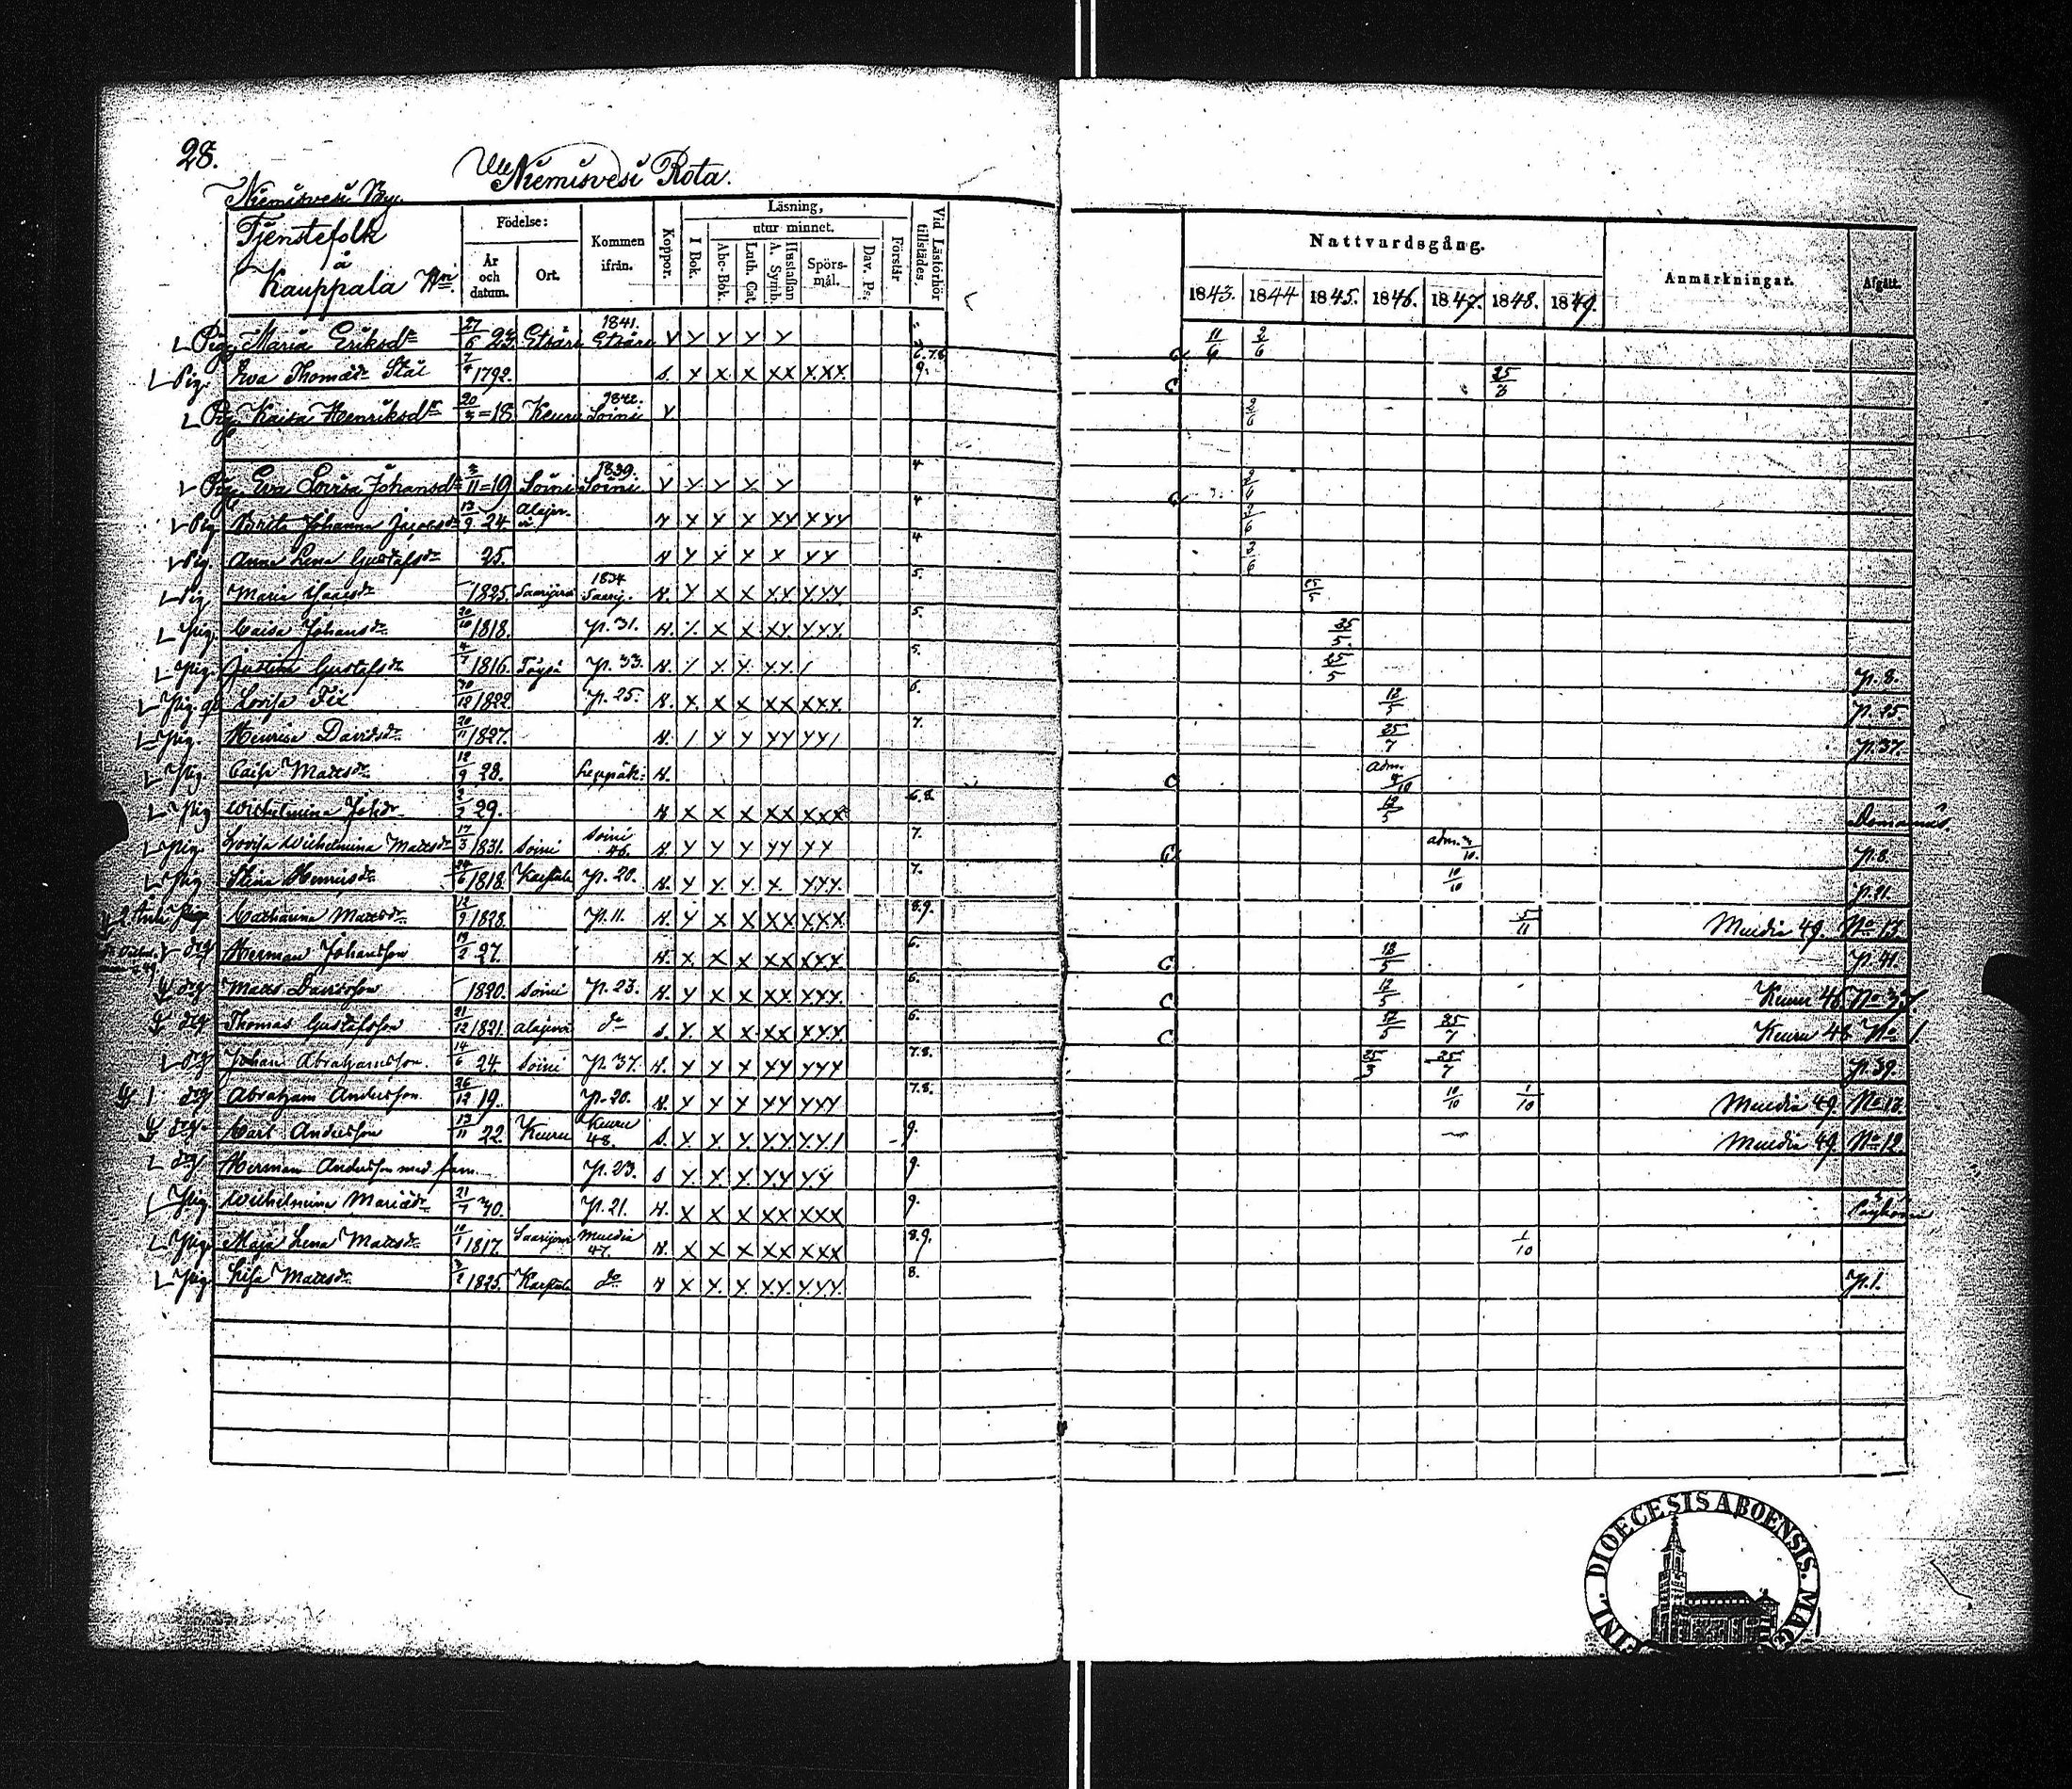 28.
Niemisvesi Rota.
Niemisvesi By.
Tjenstefolk
å
Kauppala Hn
Födelse:
År och datum.
Ort.
Kommen ifrån.
Koppor.
Läsning,
I Bok.
utur minnet.
Abc-Bok.
Luth. Cat.
A. Symb.
Hustaflan
Spörsmål.
Dav. Ps.
Förstår
Vid Läsförhör tillstädes.
Nattvardsgång.
1843. 1844 1845. 1846. 1847. 1848. 1849.
Anmärkningar.
Afgått.
Pig. Maria Eriksdr 27/6 23. Etsäri 1841. Etsäri Y Y Y Y Y 11/6 2/6
Pig. Eva Thomadr Stål 1792. s. X X X XX XXX. 6.7.8 9. C 25/3
Pig. Kaisa Henriksdr 20/3 =18. Keuru 1842. Soini Y 2/6
Pig. Eva Lovisa Johansdr 3/11 =19 Soini 1839. Soini Y Y Y X Y 4 2/6
Pig. Brita Johanna Jacobsdr 13/9 24. Alajervi N X X X XX XXX 4 2/6
Pig. Anna Lena Gustafsdr 25. N Y X X X XX 4 2/6
Pig Maria Isaacsdr 1825. Saarijervi 1834 Saarij. N. Y X X XX XXX 5. 25/5
Pig. Caisa Johansdr 20/10 1818. p. 31. N. X X X XX XXX 5. 25/5
Pig. Justina Gustafsdr 4/7 1816. Töysä p. 33. N. / X X. XX. / 5. 25/5 p. 8.
Pig. Lovisa Fix 30/12 1822. p. 25. N. X X X XX XXX. 6. 12/5 p. 25
Pig. Henrica Davidsdr 20/11 1827. N. / Y Y XY YY/ 7. 25/7 p. 37.
Pig. Caisa Mattsdr 12/9 28. Leppäk: N. C adm. 4/10
Pig Wilhelmina Johdr 2/2 29. N X X X XX XXX 6.8. 12/5
Pig. Lovisa Wilhelmina Mattsdr 17/3 1831. Soini Soini 46. N. Y Y Y YY YY 7. adm. 3/10. p. 8.
Pig Stina Henricsdr 24/6 1818. Karstula p. 20. N. Y Y. Y X. YYY. 7. 10/10 p. 21.
Pig Catharina Mattsdr 12/9 1828. p. 11. N. Y X X XX XXX. 8.9. 5/11 Muldia 49. No 13.
drg Herman Johansson 19/2 27. N. X. X X XX XXX. 6. C 12/5 p. 41.
drg Matts Davidsson 1820. Soini p. 23. N. Y X X XX XXX. 6. C 12/5 Keuru 48 No 37.
drg Thomas Gustafsson 21/12 1821. Alajervi do s. X. X X XX XXX. 6. C 17/5 25/7 Keuru 48 No 1
drg Johan Abrahamsson. 14/6 24. Soini p. 37. N. Y Y X YY YYY 7.8. 25/3 25/7 p. 39.
1 drg Abraham Andersson. 26/12 19. p. 20. N. Y Y X YY YYY 7.8. 10/10 1/10 Muldia 49. No 13.
drg. Carl Andersson 13/11 22. Keuru Keuru 48. s. X. X X XX XX/ 9. Muldia 49. No 12.
drg. Herman Andersson med fam. p. 23. s Y. X. Y. YY YY 9.
Pig. Wilhelmina Mariädr 21/7 30. p. 21. N. X X X XX XXX 9.
Pig. Maja Lena Mattsdr 10/1 1817. Saarijervi Muldia 47. N. X X X XX XXX 8.9. 1/10
Pig. Lisa Mattsdr 3/2 1825. Karstula do N X X. X X.X. XXX. 8. p. 1.
FINL. DIOECESIS ABOENSIS. MAG.